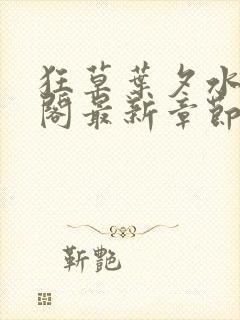 狂草葉夕水
閣最新章節
靳艷